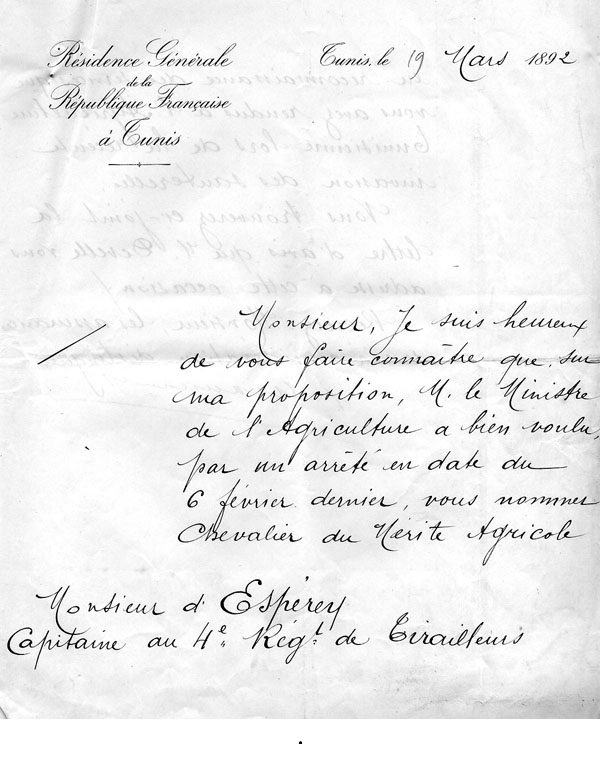 Résidence Générale
de la
République Française
à Tunis
Tunis, le 19 Mars 1892
Monsieur, Je suis heureux
de vous faire connaître que, sur
ma proposition, M. le Ministre
de l'Agriculture a bien voulu,
par un arrêté en date du
6 février dernier, vous nommer
Chevalier du Mérite Agricole
Monsieur d'Espérey
Capitaine au 4e Régt. de Tirailleurs